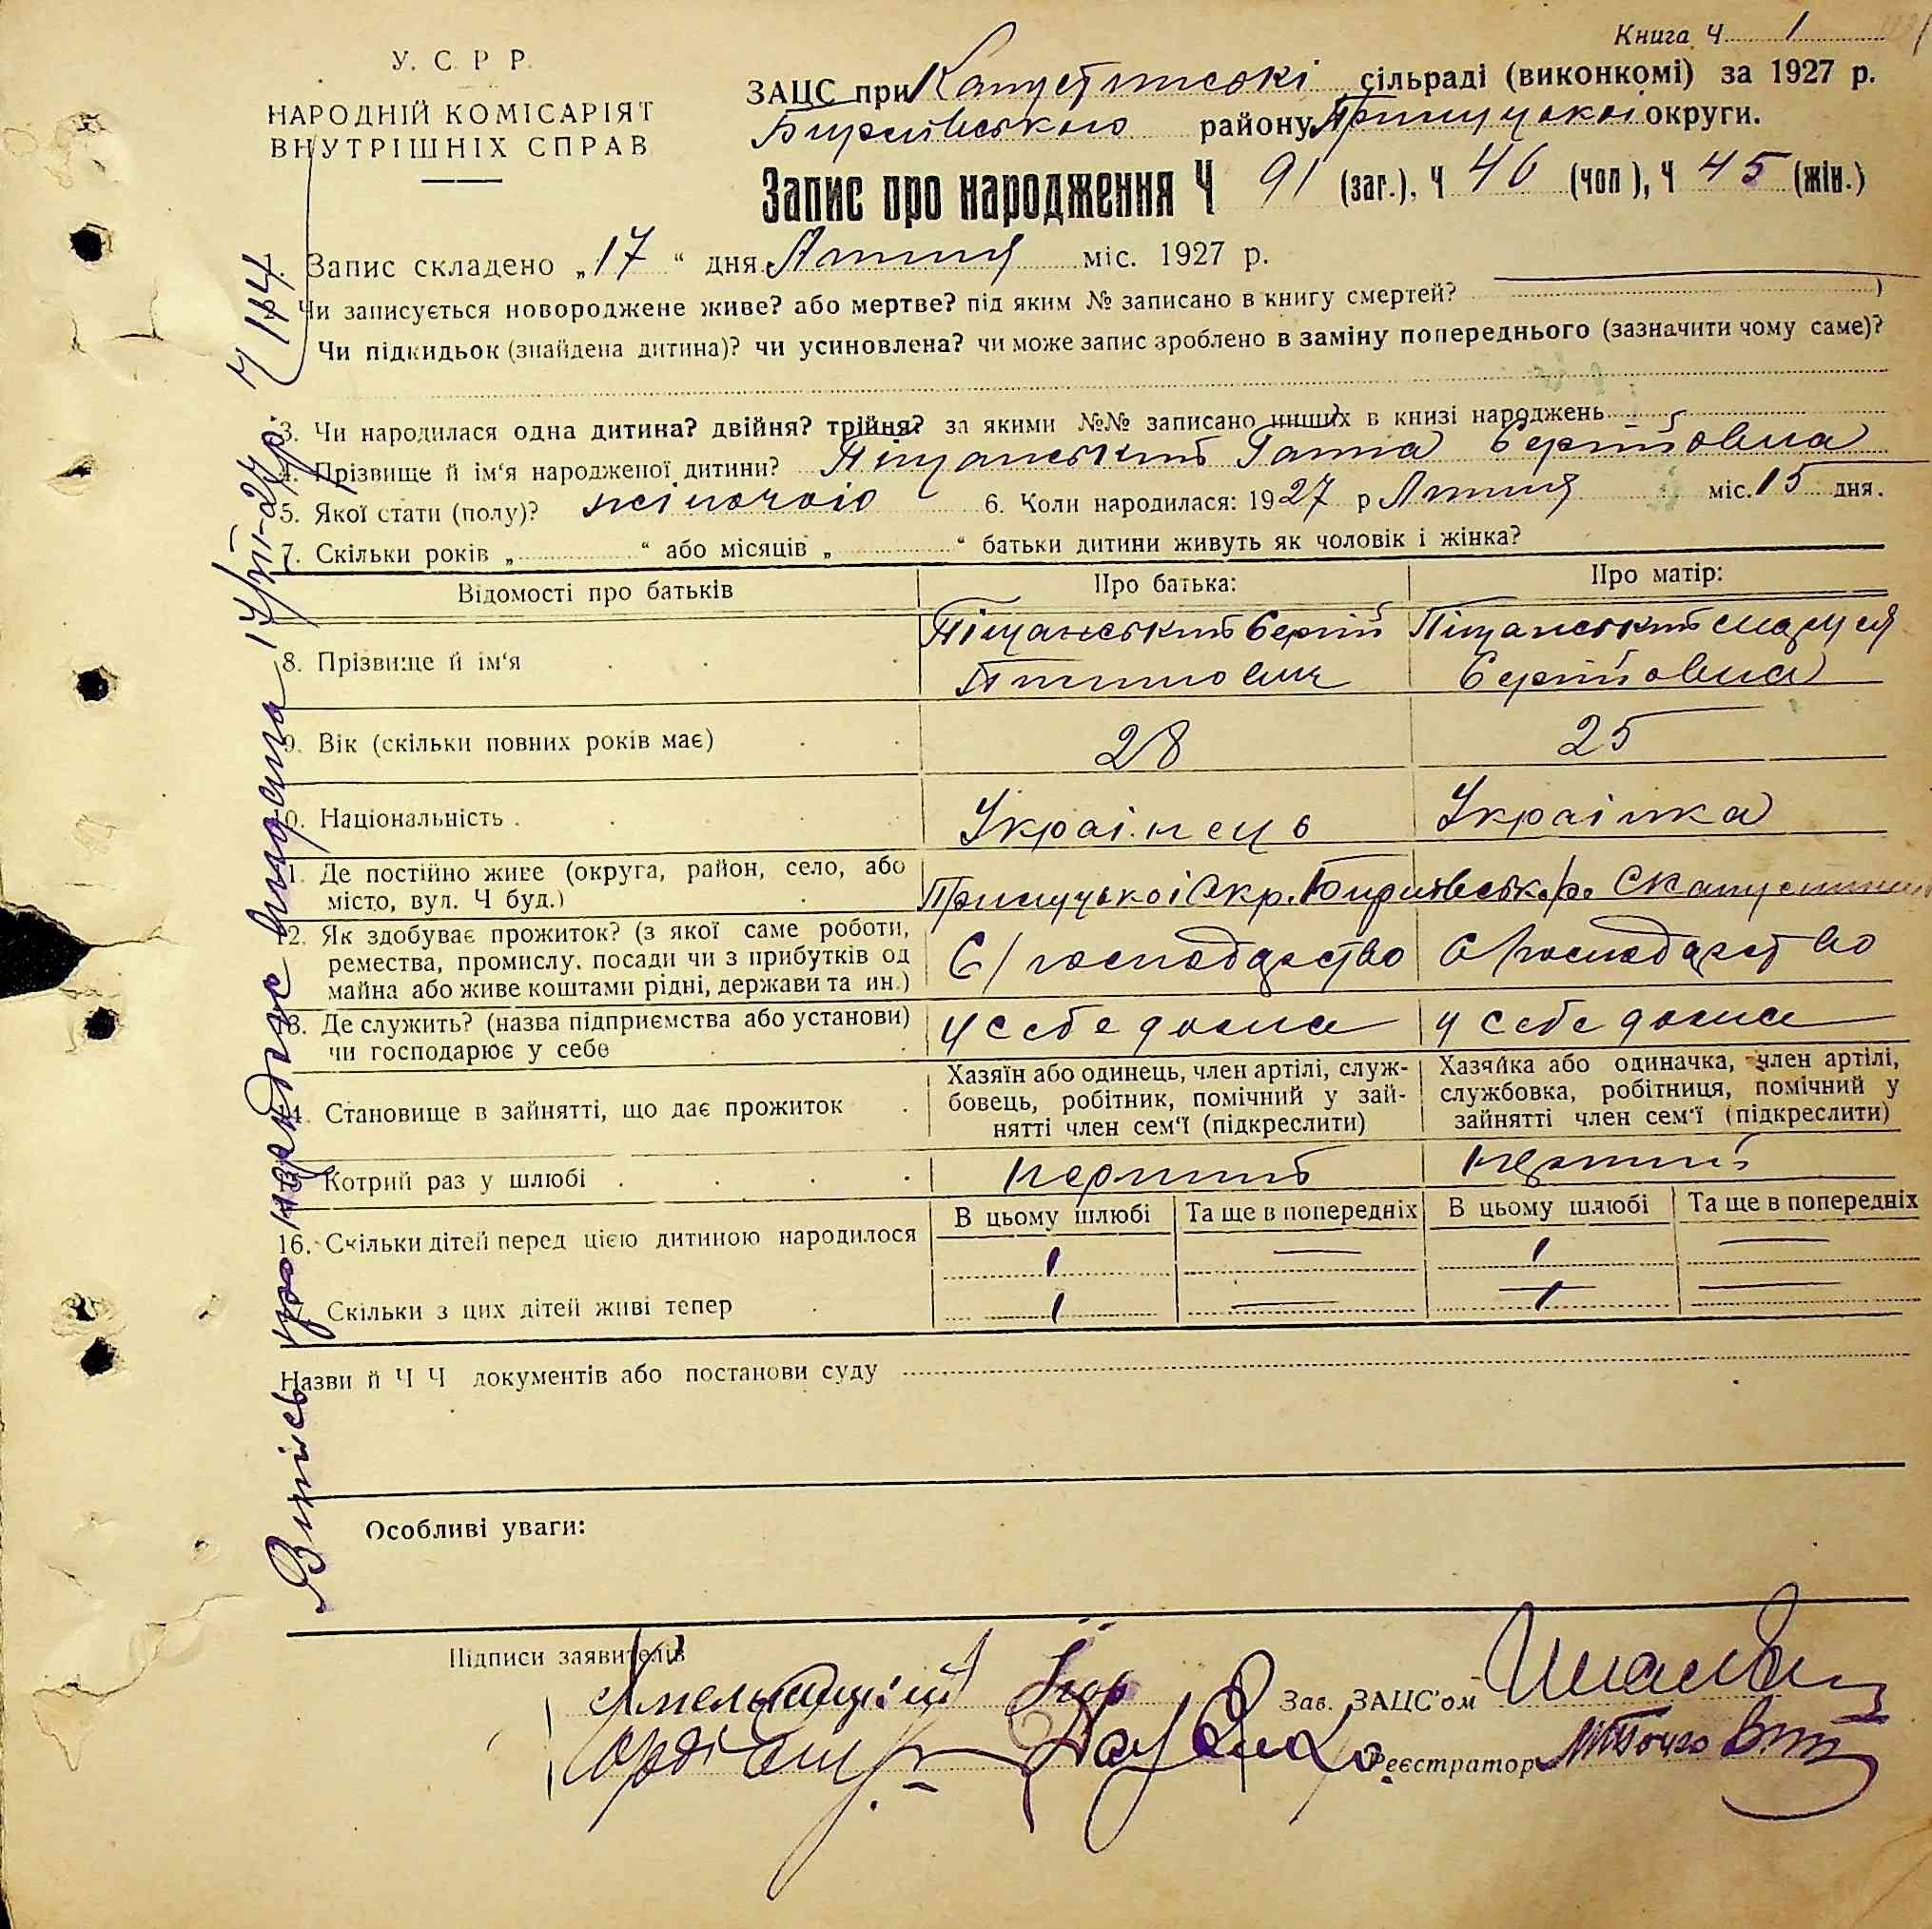 Книга Ч 1
У. С. Р. Р.
НАРОДНІЙ КОМІСАРІЯТ
ВНУТРІШНІХ СПРАВ
ЗАЦС при сільраді (виконкомі) за 1927 р.
району Прилуцької округи.
Запис про народження Ч 91 (заг.), Ч 46 (чол), Ч 45 (жін.)
1. Запис складено „17“ дня Липня міс. 1927 р.
Чи записується новороджене живе? або мертве? під яким № записано в книгу смертей?
Чи підкидьок (знайдена дитина)? чи усиновлена? чи може запис зроблено в заміну попереднього (зазначити чому саме)?
3. Чи народилася одна дитина? двійня? трійня? за якими №№ записано инших в книзі народжень
4. Прізвище й ім‘я народженої дитини? Піщанський Ганна Сергійовна
5. Якої стати (полу)? жіночою 6. Коли народилася: 1927 р Липня міс. 15 дня.
7. Скільки років „ “ або місяців „ “ батьки дитини живуть як чоловік і жінка?
Відомості про батьків Про батька: Про матір:
8. Прізвище й ім‘я Піщанський Сергій Піщанський Маруся
Сергійовна
9. Вік (скільки повних років має) 28 25
0. Національність Українець Українка
1. Де постійно живе (округа, район, село, або
місто, вул. Ч буд.) Прилуцької Окр.
2. Як здобуває прожиток? (з якої саме роботи,
ремества, промислу, посади чи з прибутків од
майна або живе коштами рідні, держави та ин.) С/господарство С/господарство
3. Де служить? (назва підприємства або установи)
чи господарює у себе у себе дома у себе дома
4. Становище в зайнятті, що дає прожиток
Хазяїн або одинець, член артілі, служ-
бовець, робітник, помічний у зай-
нятті член сем‘ї (підкреслити)
Хазяйка або одиначка, член артілі,
службовка, робітниця, помічний у
зайнятті член сем‘ї (підкреслити)
Котрий раз у шлюбі перший перший
В цьому шлюбі Та ще в попередніх В цьому шлюбі Та ще в попередніх
16. Скільки дітей перед цією дитиною народилося 1 — 1 —
Скільки з цих дітей живі тепер 1 — 1 —
Назви й Ч Ч документів або постанови суду
Особливі уваги:
Підписи заявителів
Зав. ЗАЦС’ом
Реєстратор
Випись про народження видана 17/VII-27 р. Ч 114